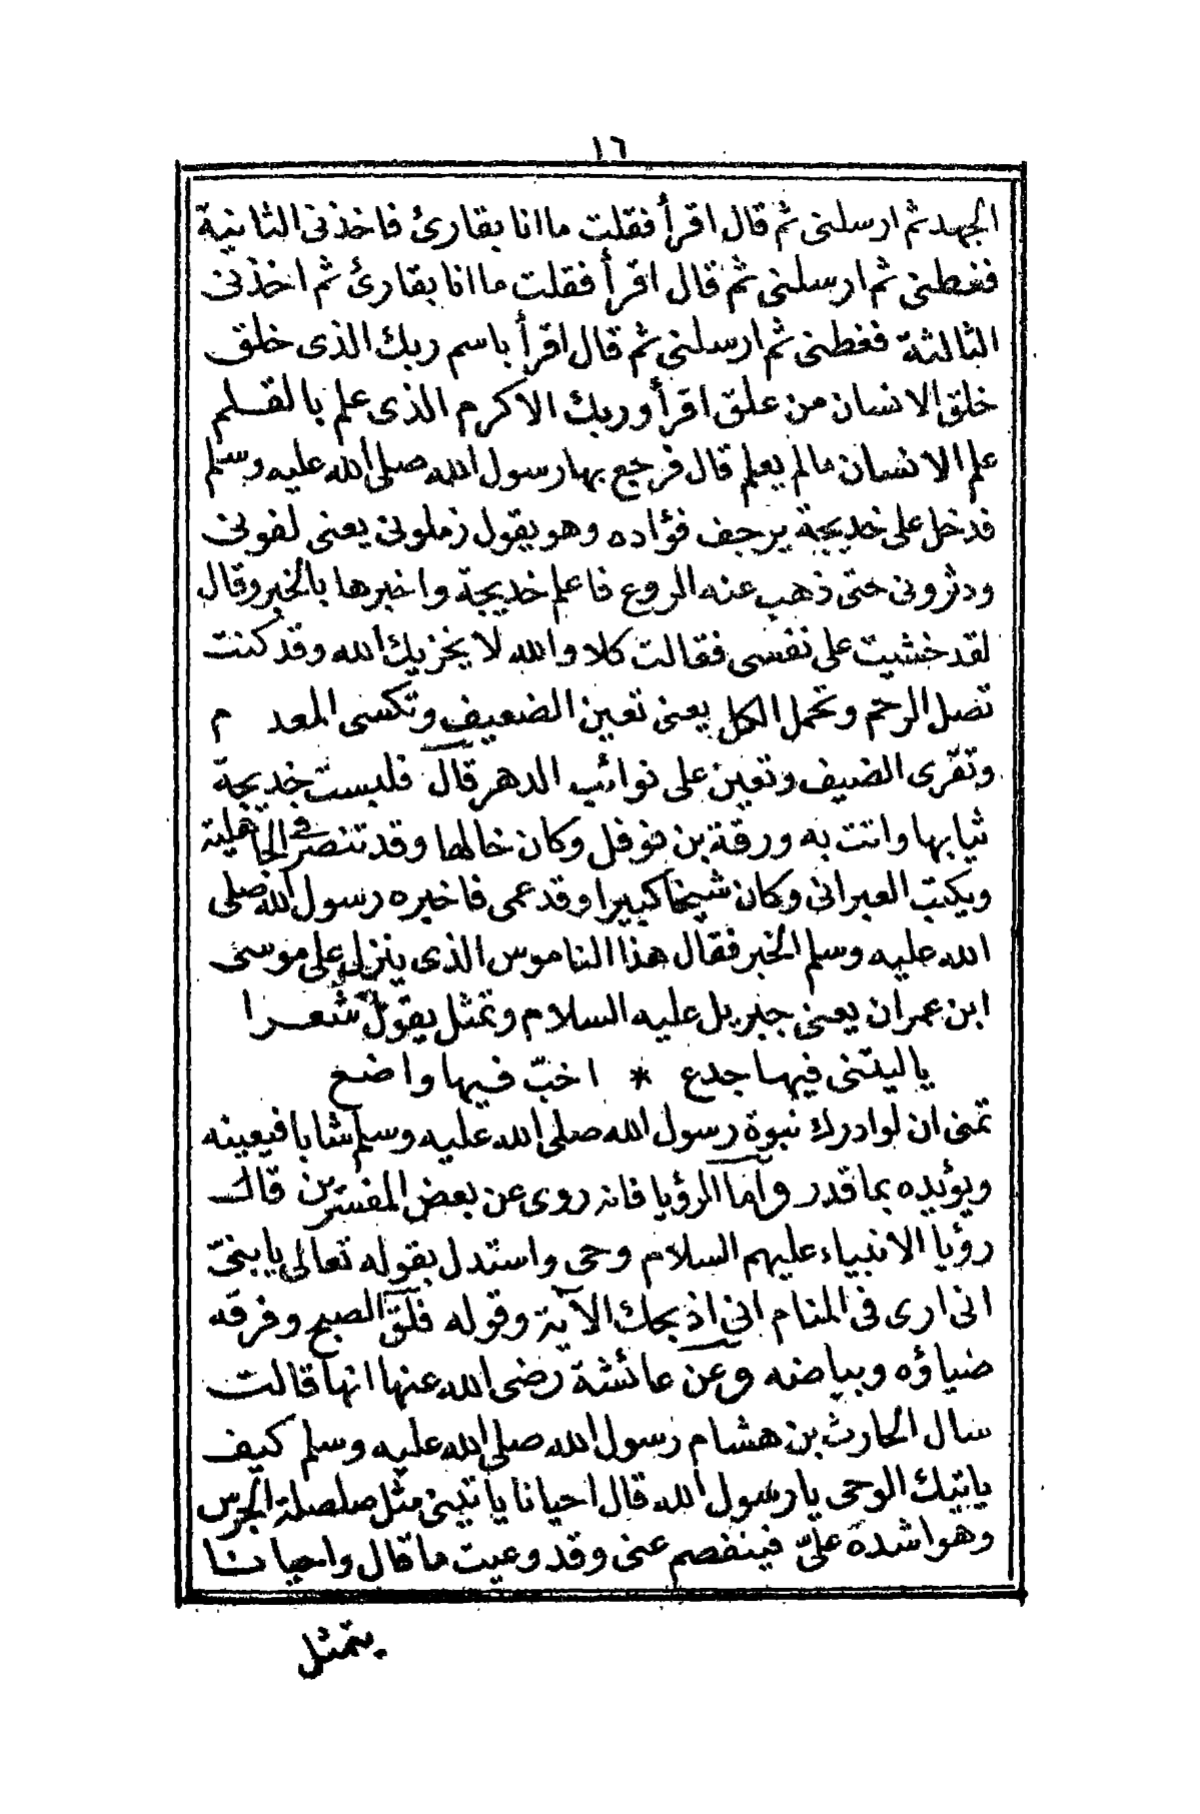 ١٦
الجهد ثم ارسلنى ثم قال اقرأ فقلت ما انا بقارئ فاخذنى الثانية
فغطنى ثم ارسلنى ثم قال اقرأ فقلت ما انا بقارئ ثم اخذنى
الثالثة فغطنى ثم ارسلنى ثم قال اقرأ باسم ربك الذى خلق
خلق الانسان من علق اقرأ وربك الاكرم الذى علم بالقلم
علم الانسان مالم يعلم قال فرجع بها رسول الله صلى الله عليه وسلم
فدخل على خديجة يرجف فؤاده وهو يقول زملونى يعنى لفونى
ودثرونى حتى ذهب عنه الروع فاعلم خديجة واخبرها بالخبر وقال
لقد خشيت على نفسى فقالت كلا والله لا يخزيك الله وقد كنت
تصل الرحم وتحمل الكل يعنى تعين الضعيف وتكسى المعدم
وتقرى الضيف وتعين على نوائب الدهر قال فلبست خديجة
ثيابها واتت به ورقة بن نوفل وكان خالها وقد تنصر فى الجاهلية
ويكتب العبرانى وكان شيخا كبيرا وقد عمى فاخبره رسول الله صلى
الله عليه وسلم الخبر فقال هذا الناموس الذى ينزل على موسى
ابن عمران يعنى جبريل عليه السلام وتمثل يقول شعرا
ياليتنى فيها جدع * اخبّ فيها واضع
تمنى ان لو ادرك نبوة رسول الله صلى الله عليه وسلم شابا فيعينه
ويؤيده بما قدر وأما الرؤيا فانه روى عن بعض المفسرين قال
رؤيا الانبياء عليهم السلام وحى واستدل بقوله تعالى يا بنىّ
انى ارى فى المنام انى اذبحك الآية وقوله فلق الصبح وفرقه
ضياؤه وبياضه وعن عائشة رضى الله عنها انها قالت
سال الحارث بن هشام رسول الله صلى الله عليه وسلم كيف
ياتيك الوحى يا رسول الله قال احيانا ياتينى مثل صلصلة الجرس
وهو اشده علىّ فينفصم عنى وقد وعيت ما قال واحيانا
يتمثل